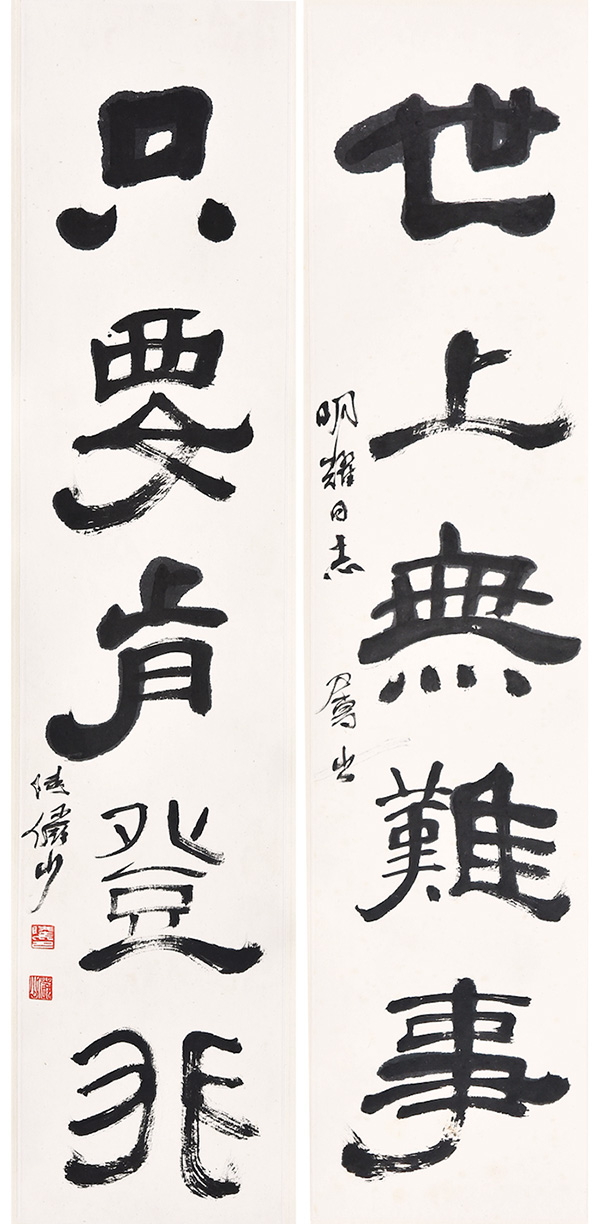 世上無難事
明耀同志
只要肯登攀
陸儼少